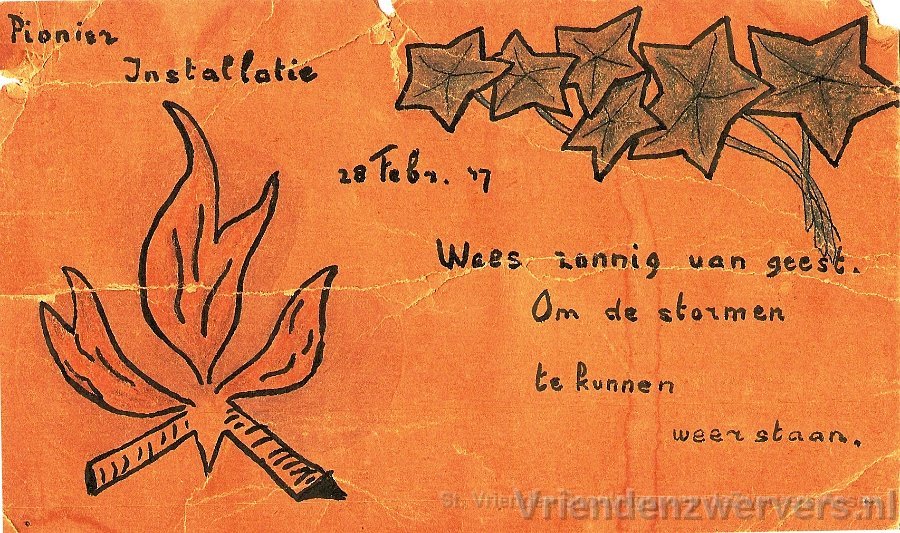 Pionier
Installatie
28 Febr. '47
Wees zonnig van geest.
Om de stormen
te kunnen
weerstaan.
St. Vriendenzwervers.nl